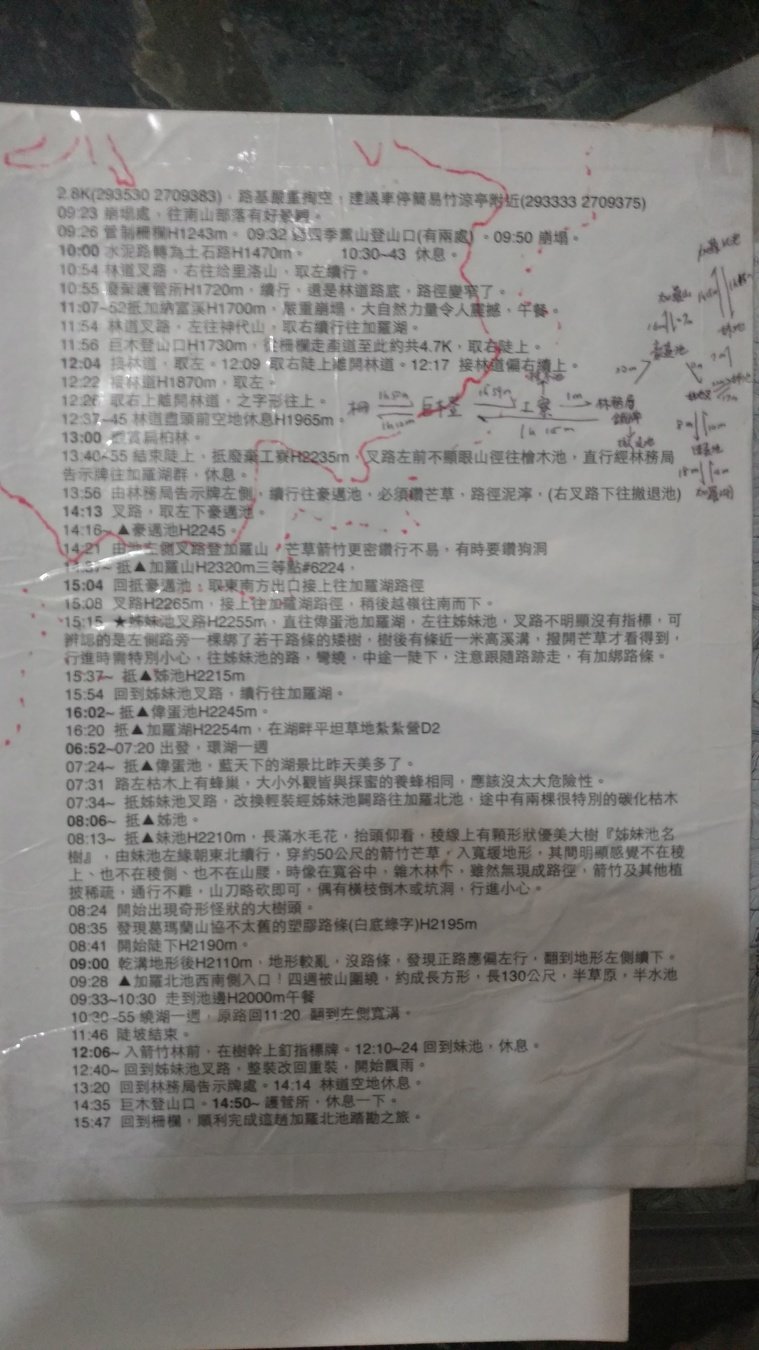 2.8K(293530 2709383)，路基嚴重掏空，建議車停簡易竹涼亭附近(293333 2709375)
09:23 崩塌處，往南山部落有好景觀。
09:26 管制柵欄H1243m。 09:32 過四季薰山登山口(有兩處) 。09:50 崩塌。
10:00 水泥路轉為土石路H1470m。 10:30~43 休息。
10:54 林道叉路，右往給里洛山，取左續行。
10:55 廢棄護管所H1720m，續行，還是林道路底，路徑變窄了。
11:07~52抵加納富溪H1700m，嚴重崩塌，大自然力量令人震撼，午餐。
11:54 林道叉路，左往神代山，取右續行往加羅湖。
11:56 巨木登山口H1730m，從柵欄走產道至此約共4.7K，取右陡上。
12:04 接林道，取左。12:09 取右陡上離開林道。12:17 接林道偏右續上。
12:22 接林道H1870m，取左。
12:26 取右上離開林道，之字形往上。
12:37~45 林道盡頭前空地休息H1965m。
13:00 扁柏林。
13:40~55 結束陡上，抵廢棄工寮H2235m，叉路左前不顯眼山徑往檜木池，直行經林務局
告示牌往加羅湖群，休息。
13:56 由林務局告示牌左側，續行往豪邁池，必須鑽芒草，路徑泥濘，(右叉路下往撤退池)
14:13 叉路，取左下豪邁池。
14:16~ ▲豪邁池H2245。
14:21 由池左側叉路登加羅山，芒草箭竹更密鑽行不易，有時要鑽狗洞
14:37~ 抵▲加羅山H2320m三等點#6224，
15:04 回抵豪邁池，取東南方出口接上往加羅湖路徑
15:08 叉路H2265m，接上往加羅湖路徑，稍後越嶺往南而下。
15:15 ★姊妹池叉路H2255m，直往偉蛋池加羅湖，左往姊妹池，叉路不明顯沒有指標，可
辨認的是左側路旁一棵綁了若干路條的矮樹，樹後有條近一米高溪溝，撥開芒草才看得到，
行進時需特別小心，往姊妹池的路，彎繞，中途一陡下，注意跟隨路跡走，有加綁路條。
15:37~ 抵▲姊池H2215m
15:54 回到姊妹池叉路，續行往加羅湖。
16:02~ 抵▲偉蛋池H2245m。
16:20 抵▲加羅湖H2254m，在湖畔平坦草地紮紮營D2
06:52~07:20 出發，環湖一週
07:24~ 抵▲偉蛋池，藍天下的湖景比昨天美多了。
07:31 路左枯木上有蜂巢，大小外觀皆與採蜜的養蜂相同，應該沒太大危險性。
07:34~ 抵姊妹池叉路，改換輕裝經姊妹池闢路往加羅北池，途中有兩棵很特別的碳化枯木
08:06~ 抵▲姊池。
08:13~ 抵▲妹池H2210m，長滿水毛花，抬頭仰看，稜線上有顆形狀優美大樹『姊妹池名
樹』，由妹池左緣朝東北續行，穿約50公尺的箭竹芒草，入寬緩地形，其間明顯感覺不在稜
上、也不在稜側、也不在山腰，時像在寬谷中，雜木林下，雖然無現成路徑，箭竹及其他植
披稀疏，通行不難，山刀略砍即可，偶有橫枝倒木或坑洞，行進小心。
08:24 開始出現奇形怪狀的大樹頭。
08:35 發現葛瑪蘭山協不太舊的塑膠路條(白底綠字)H2195m
08:41 開始陡下H2190m。
09:00 乾溝地形後H2110m，地形較亂，沒路條，發現正路應偏左行，翻到地形左側續下。
09:28 ▲加羅北池西南側入口！四週被山圍繞，約成長方形，長130公尺，半草原，半水池
09:33~10:30 走到池邊H2000m午餐
10:30~55 繞湖一週，原路回11:20 翻到左側寬溝。
11:46 陡坡結束。
12:06~ 入箭竹林前，在樹幹上釘指標牌。12:10~24 回到妹池，休息。
12:40~ 回到姊妹池叉路，整裝改回重裝，開始飄雨。
13:20 回到林務局告示牌處。14:14 林道空地休息。
14:35 巨木登山口。14:50~ 護管所，休息一下。
15:47 回到柵欄，順利完成這趟加羅北池踏勘之旅。
加羅山
豪邁池
柵 巨木登 工寮 林務局
1h10m 1h15m
加羅湖